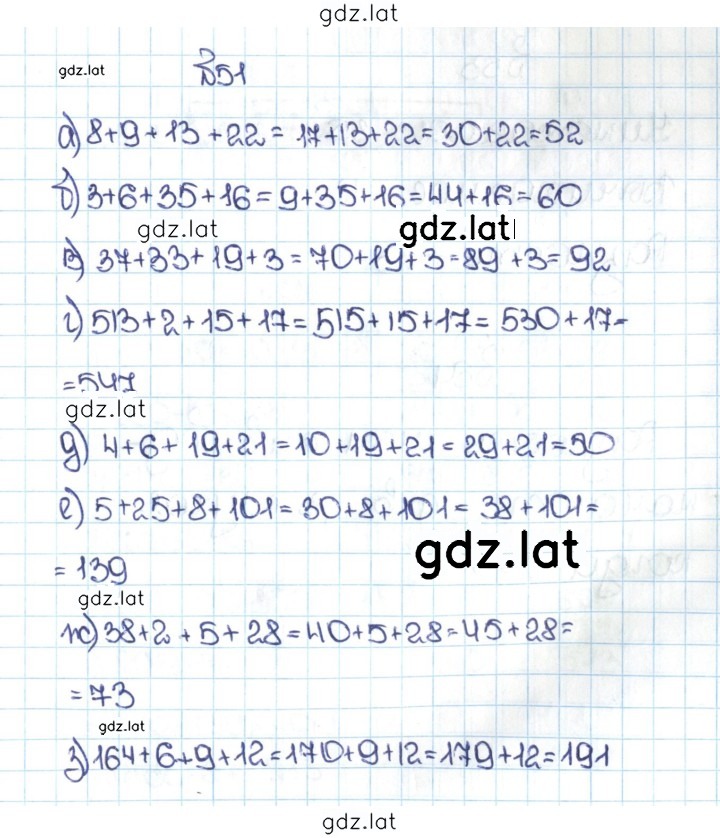 gdz.lat
gdz.lat №51
а) 8+9+13+22=17+13+22=30+22=52
б) 3+6+35+16=9+35+16=44+16=60
gdz.lat gdz.lat
в) 37+33+19+3=70+19+3=89+3=92
г) 513+2+15+17=515+15+17=530+17=
=547
gdz.lat
д) 4+6+19+21=10+19+21=29+21=50
е) 5+25+8+101=30+8+101=38+101=
gdz.lat
=139
gdz.lat
ж) 38+2+5+28=40+5+28=45+28=
=73
gdz.lat
з) 164+6+9+12=170+9+12=179+12=191
gdz.lat